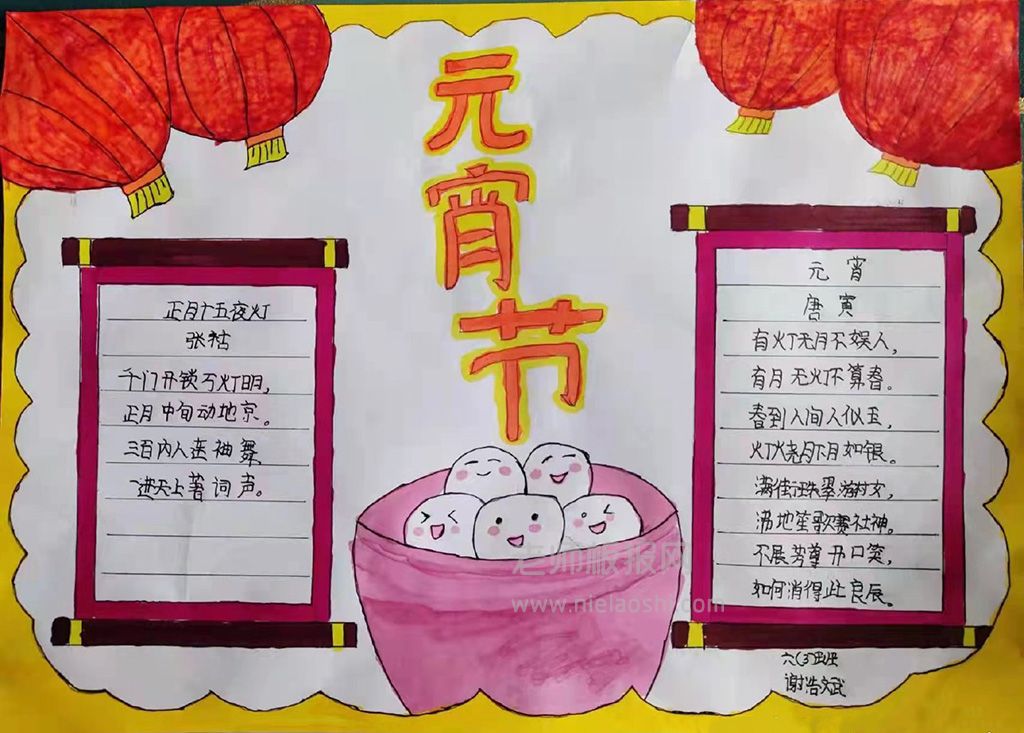 元宵节
正月十五夜灯
张祜
千门开锁万灯明，
正月中旬动地京。
三百内人连袖舞
进天上著词声。
元宵
唐寅
有灯无月不娱人，
有月无灯不算春。
春到人间人似玉，
灯烧月下月如银。
满街珠翠游村女，
沸地笙歌赛社神。
不展芳尊开口笑，
如何消得此良辰。
六(3)班
谢浩斌
老师板报网
www.nielaoshi.com